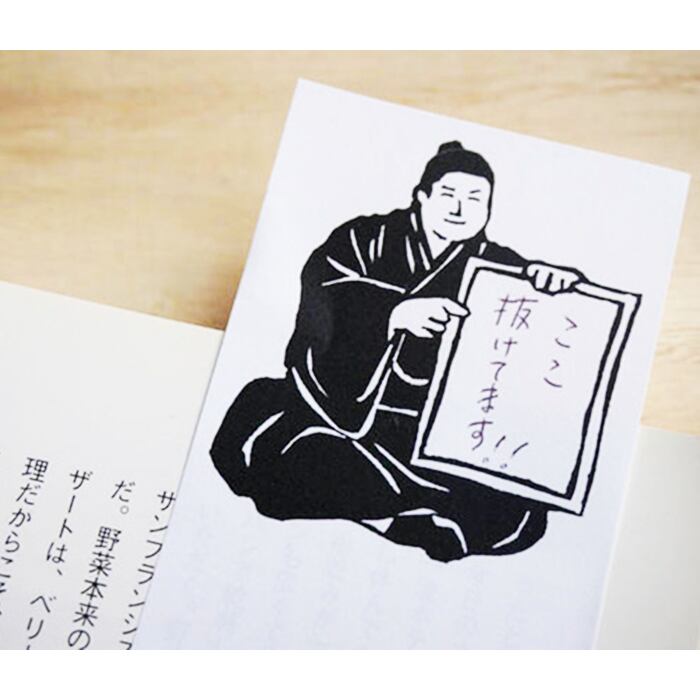 ここ
抜けてます!!
サンフランシス
だ。野菜本来の
ザートは、ベリ
理だからこそ、